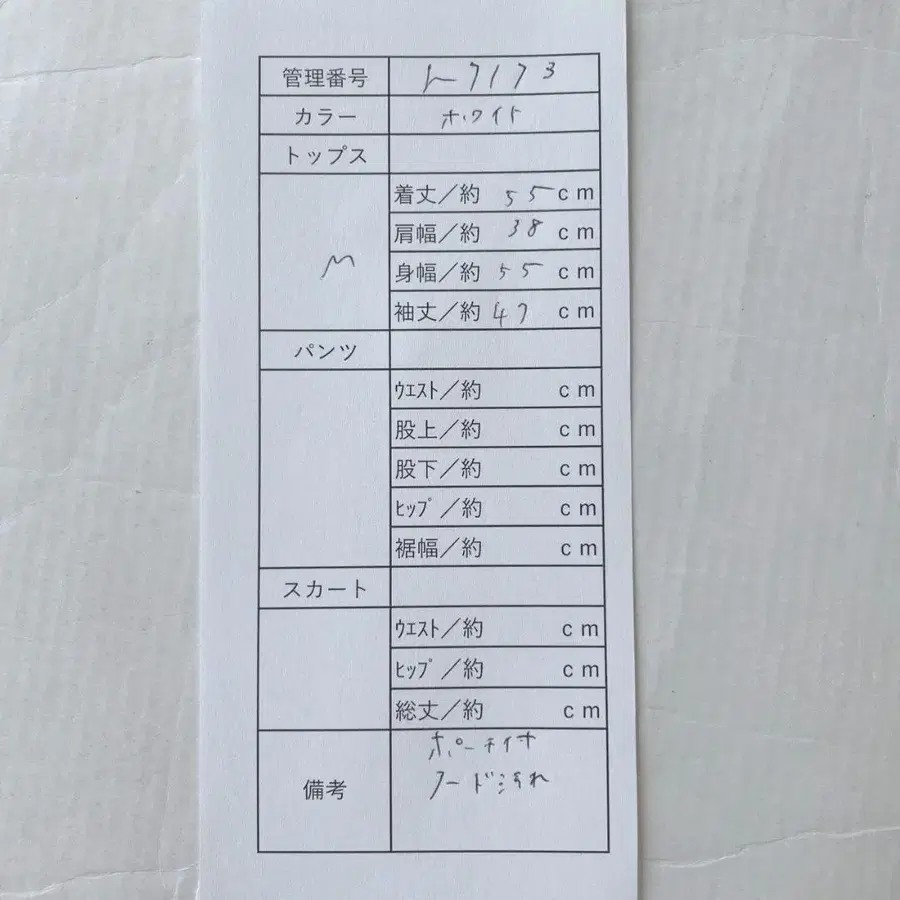 管理番号
カラー ホワイト
トップス
M
着丈／約 55 cm
肩幅／約 38 cm
身幅／約 55 cm
袖丈／約 47 cm
パンツ
ｳｴｽﾄ／約 cm
股上／約 cm
股下／約 cm
ﾋｯﾌﾟ／約 cm
裾幅／約 cm
スカート
ｳｴｽﾄ／約 cm
ﾋｯﾌﾟ／約 cm
総丈／約 cm
備考
フード汚れ